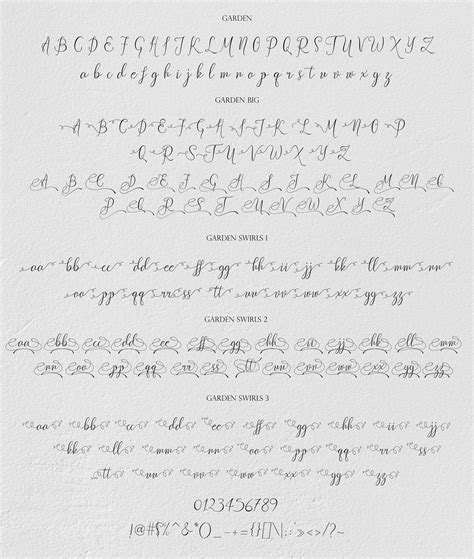 GARDEN
A B C D E F G H I J K L M N O P Q R S T U V W X Y Z
a b c d e f g h i j k l m n o p q r s t u v w x y z
GARDEN BIG
A B C D E F G H I J K L M N O P
Q R S T U V W X Y Z
A B C D E F G H I J K L M N O
P Q R S T U V W X Y Z
GARDEN SWIRLS 1
aa bb cc dd ee ff gg hh ii jj kk ll mm nn
oo pp qq rr ss tt uu vv ww xx yy zz
GARDEN SWIRLS 2
aa bb cc dd ee ff gg hh ii jj kk ll mm
nn oo pp qq rr ss tt uu vv ww xx yy zz
GARDEN SWIRLS 3
aa bb cc dd ee ff gg hh ii jj
kk ll mm nn oo pp qq rr ss
tt uu vv ww xx yy zz
0123456789